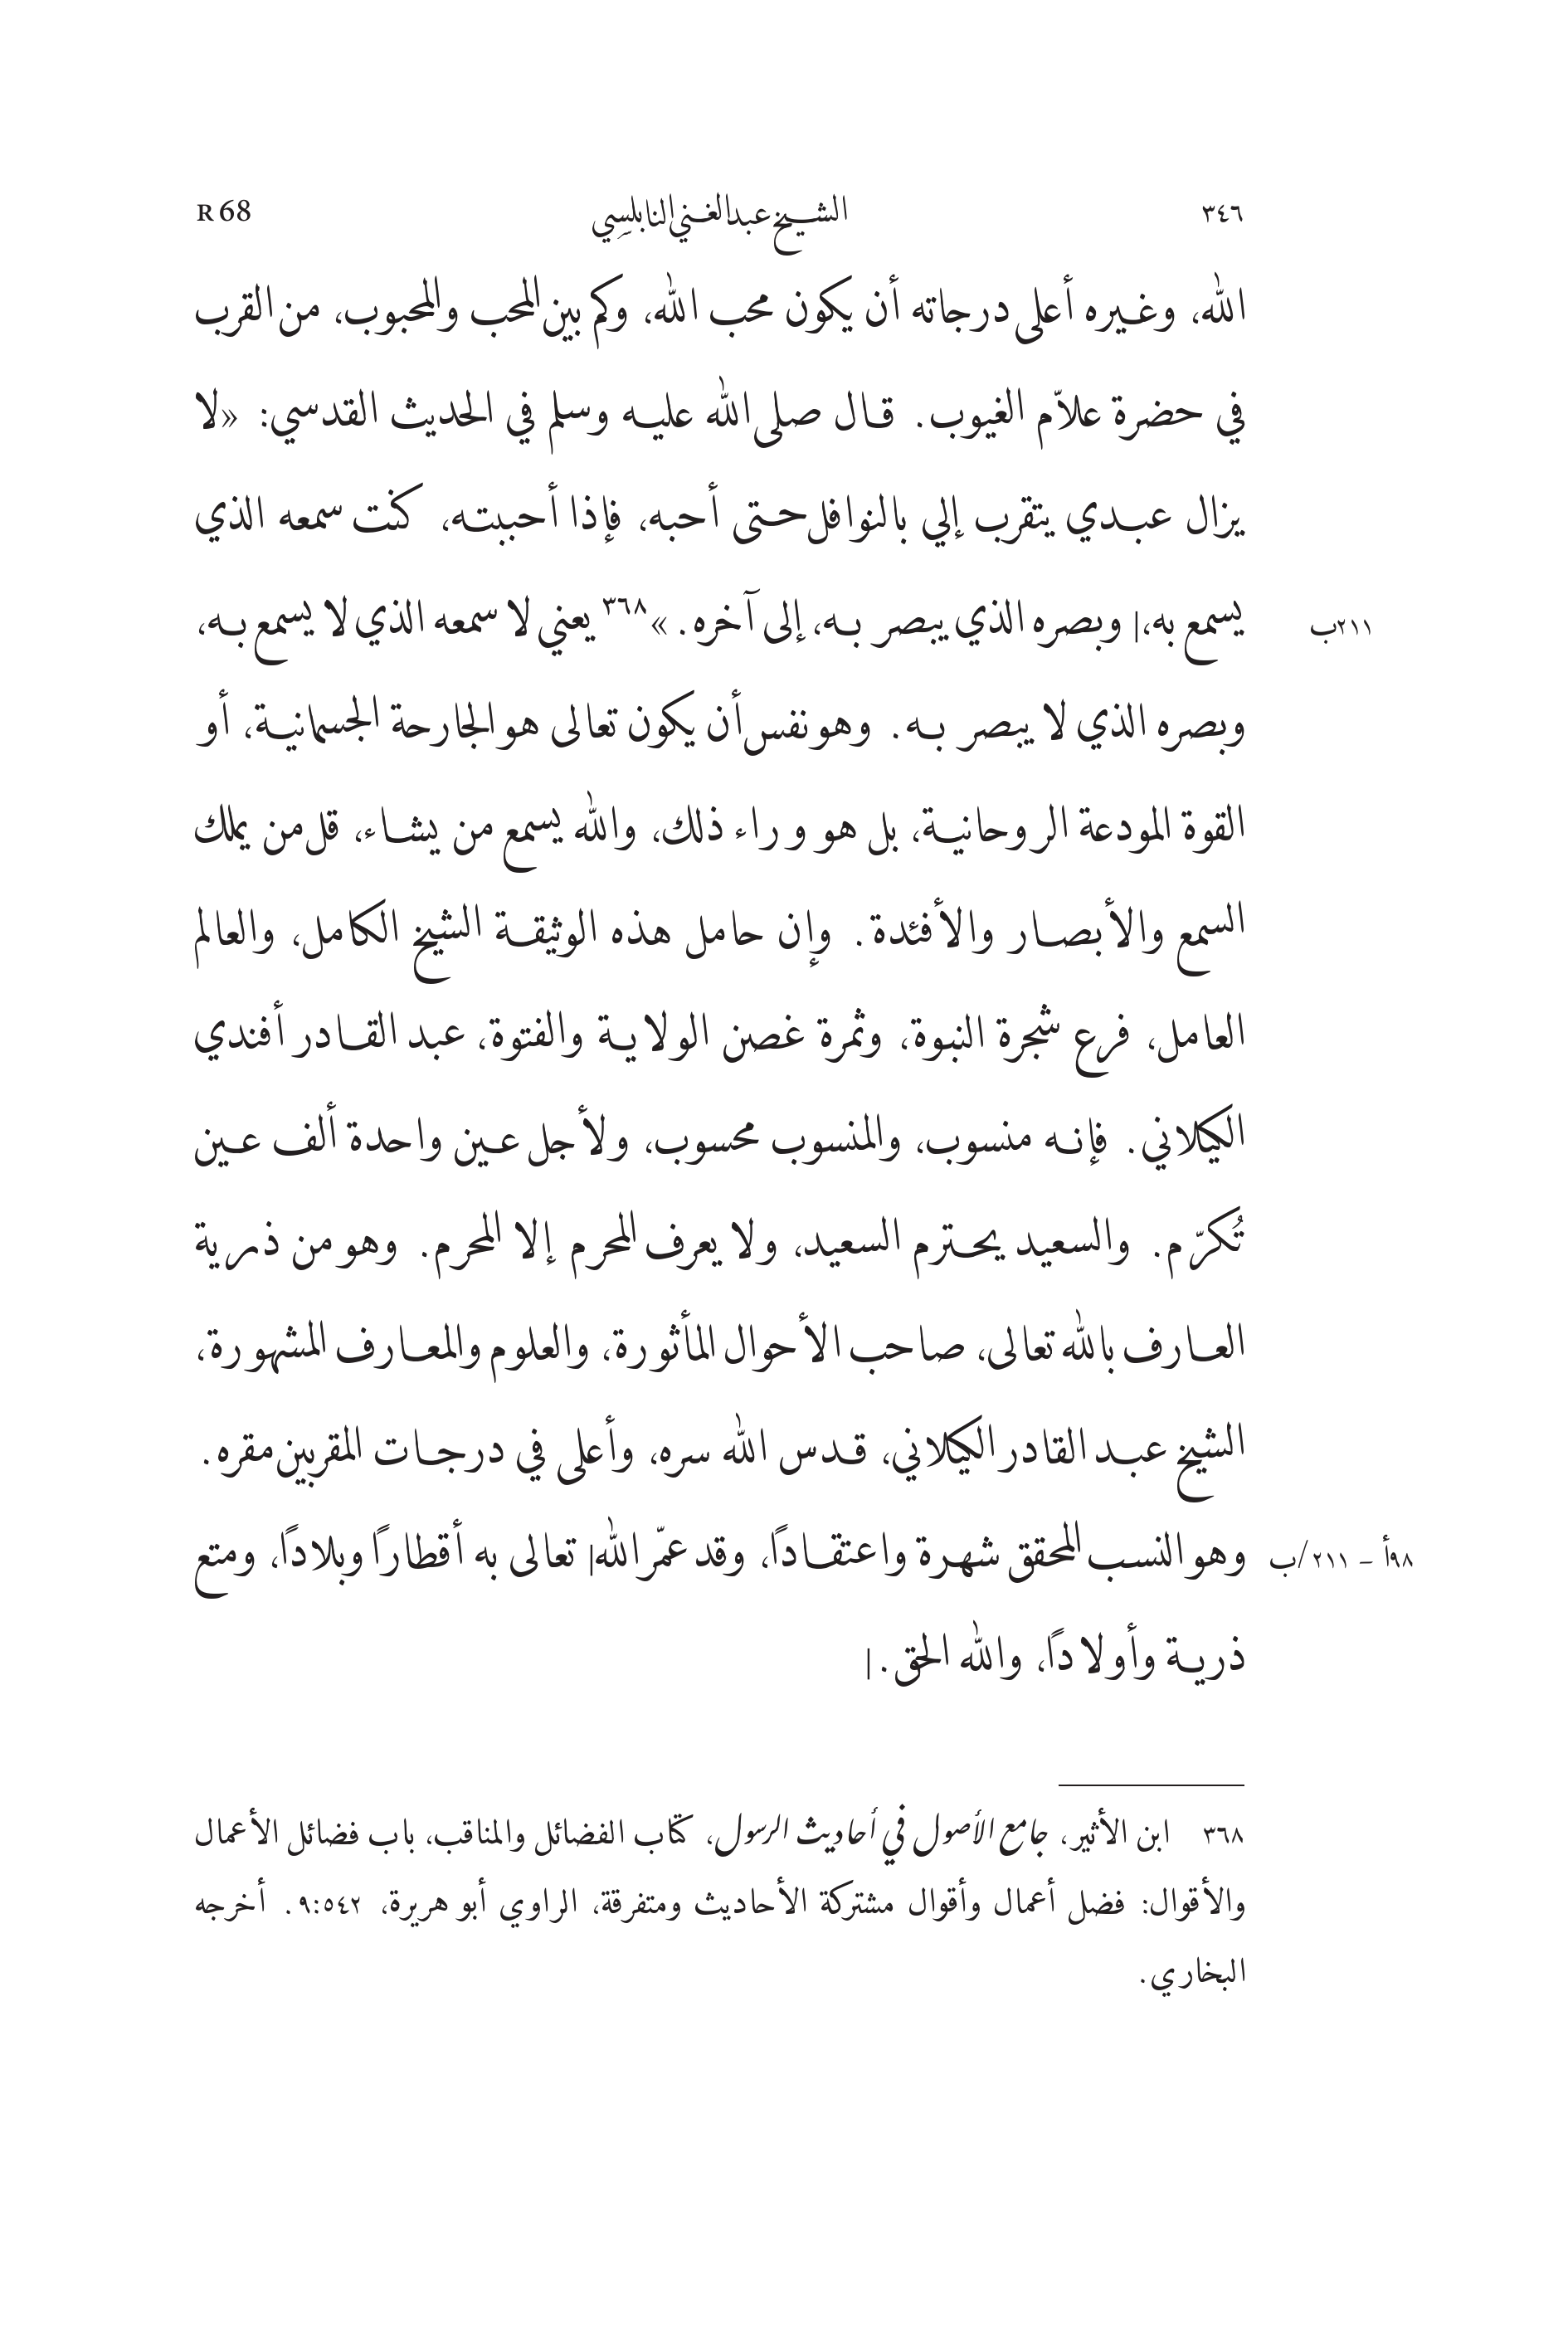 ٣٤٦ الشيخ عبد الغني النابلسي R 68
الله، وغيره أعلى درجاته أن يكون محب الله، وكم بين المحب والمحبوب، من القرب
في حضرة علاّم الغيوب. قال صلى الله عليه وسلم في الحديث القدسي: «لا
يزال عبدي يتقرب إلي بالنوافل حتى أحبه، فإذا أحببته، كنت سمعه الذي
٢١١ب يسمع به،| وبصره الذي يبصر به، إلى آخره.»٣٦٨ يعني لا سمعه الذي لا يسمع به،
وبصره الذي لا يبصر به. وهو نفس أن يكون تعالى هو الجارحة الجسمانية، أو
القوة المودعة الروحانية، بل هو وراء ذلك، والله يسمع من يشاء، قل من يملك
السمع والأبصار والأفئدة. وإن حامل هذه الوثيقة الشيخ الكامل، والعالم
العامل، فرع شجرة النبوة، وثمرة غصن الولاية والفتوة، عبد القادر أفندي
الكيلاني. فإنه منسوب، والمنسوب محسوب، ولأجل عين واحدة ألف عين
تُكرّم. والسعيد يحترم السعيد، ولا يعرف المحرم إلا المحرم. وهو من ذرية
العارف بالله تعالى، صاحب الأحوال المأثورة، والعلوم والمعارف المشهورة،
الشيخ عبد القادر الكيلاني، قدس الله سره، وأعلى في درجات المقربين مقره.
٩٨أ – ٢١١/ب وهو النسب المحقق شهرة واعتقاداً، وقد عمّر الله| تعالى به أقطاراً وبلاداً، ومتع
ذرية وأولاداً، والله الحق.|
٣٦٨ ابن الأثير، جامع الأصول في أحاديث الرسول، كتاب الفضائل والمناقب، باب فضائل الأعمال
والأقوال: فضل أعمال وأقوال مشتركة الأحاديث ومتفرقة، الراوي أبو هريرة، ٩:٥٤٢. أخرجه
البخاري.